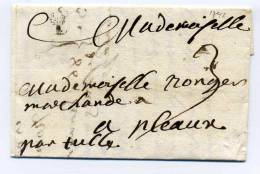 Mademoiselle
Mademoiselle Ronger
marchande a
a pleaux
par tulle